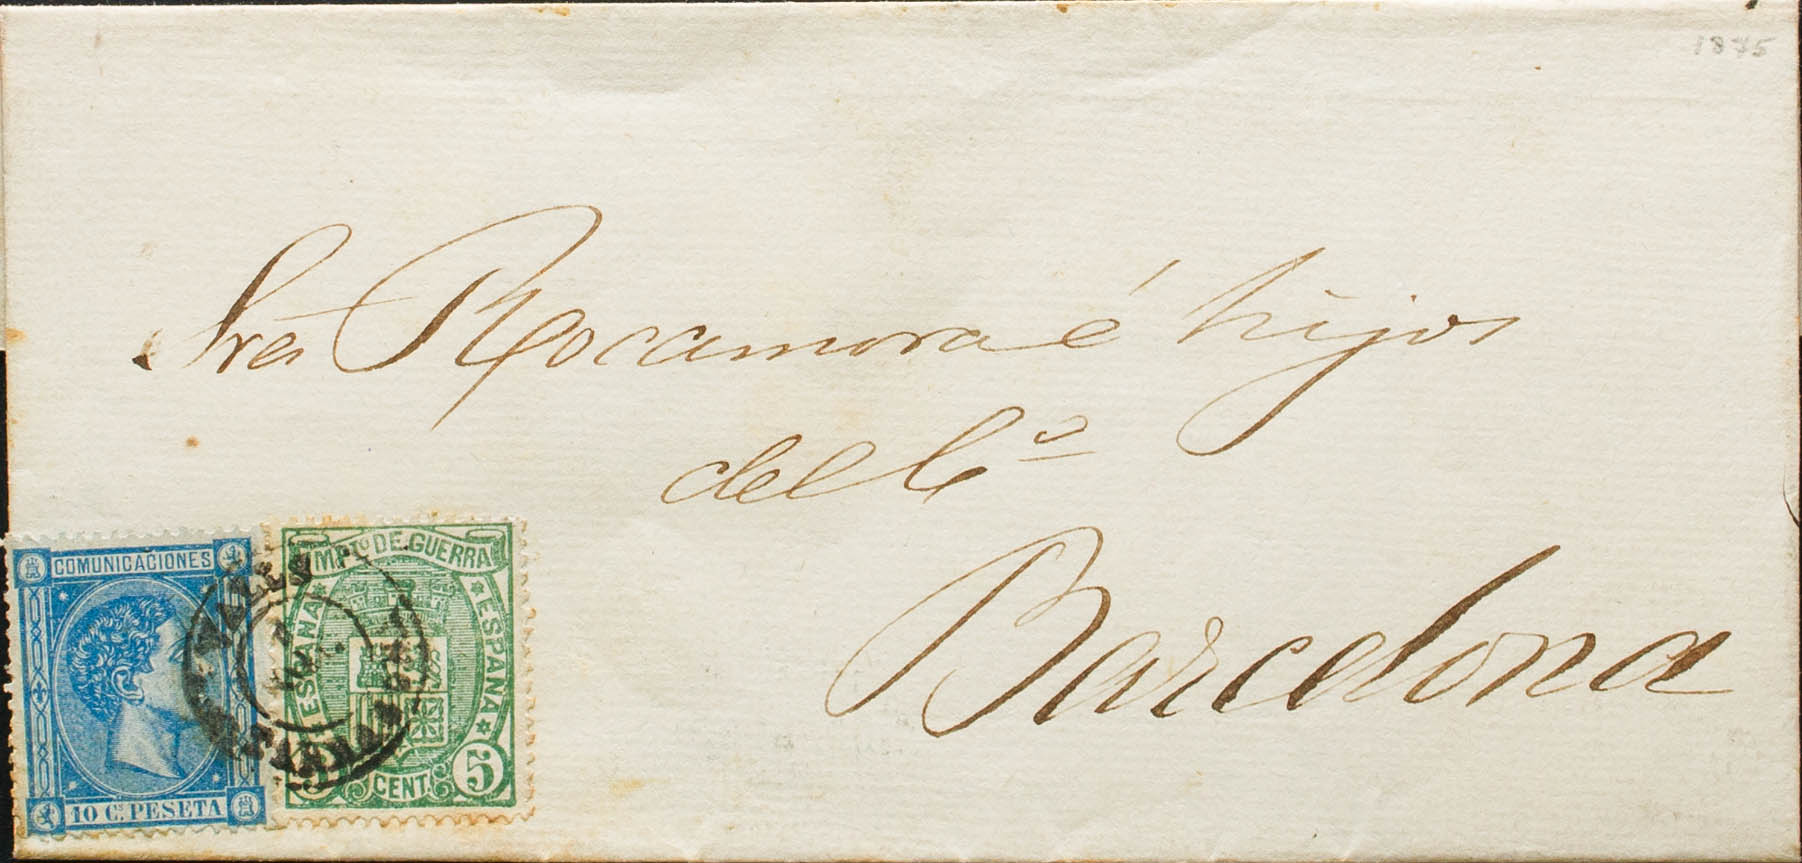 1875
Sres Rocamora é hijos
del Co
Barcelona
COMUNICACIONES
10 Cs. PESETA
IMPTO DE GUERRA
ESPAÑA
ESPAÑA
5 CENT. 5
VALLS